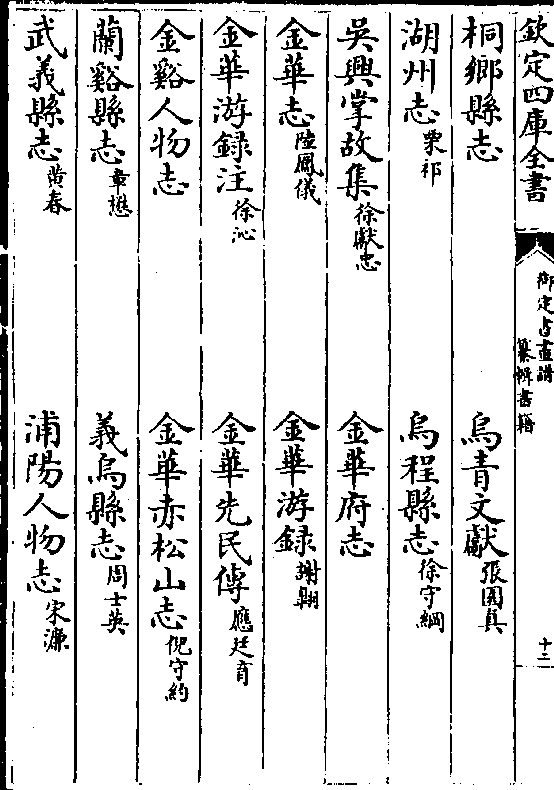 欽定四庫全書
御定書畫譜
纂輯書籍
十二
桐鄉縣志　烏青文獻張園真
湖州志栗祁　烏程縣志徐守綱
吳興掌故集徐獻忠　金華府志
金華志陸鳳儀　金華游録謝翱
金華游録注徐沁　金華先民傳應廷育
金谿人物志　金華赤松山志倪守約
蘭谿縣志章懋　義烏縣志周士英
武義縣志黄春　浦陽人物志宋濂